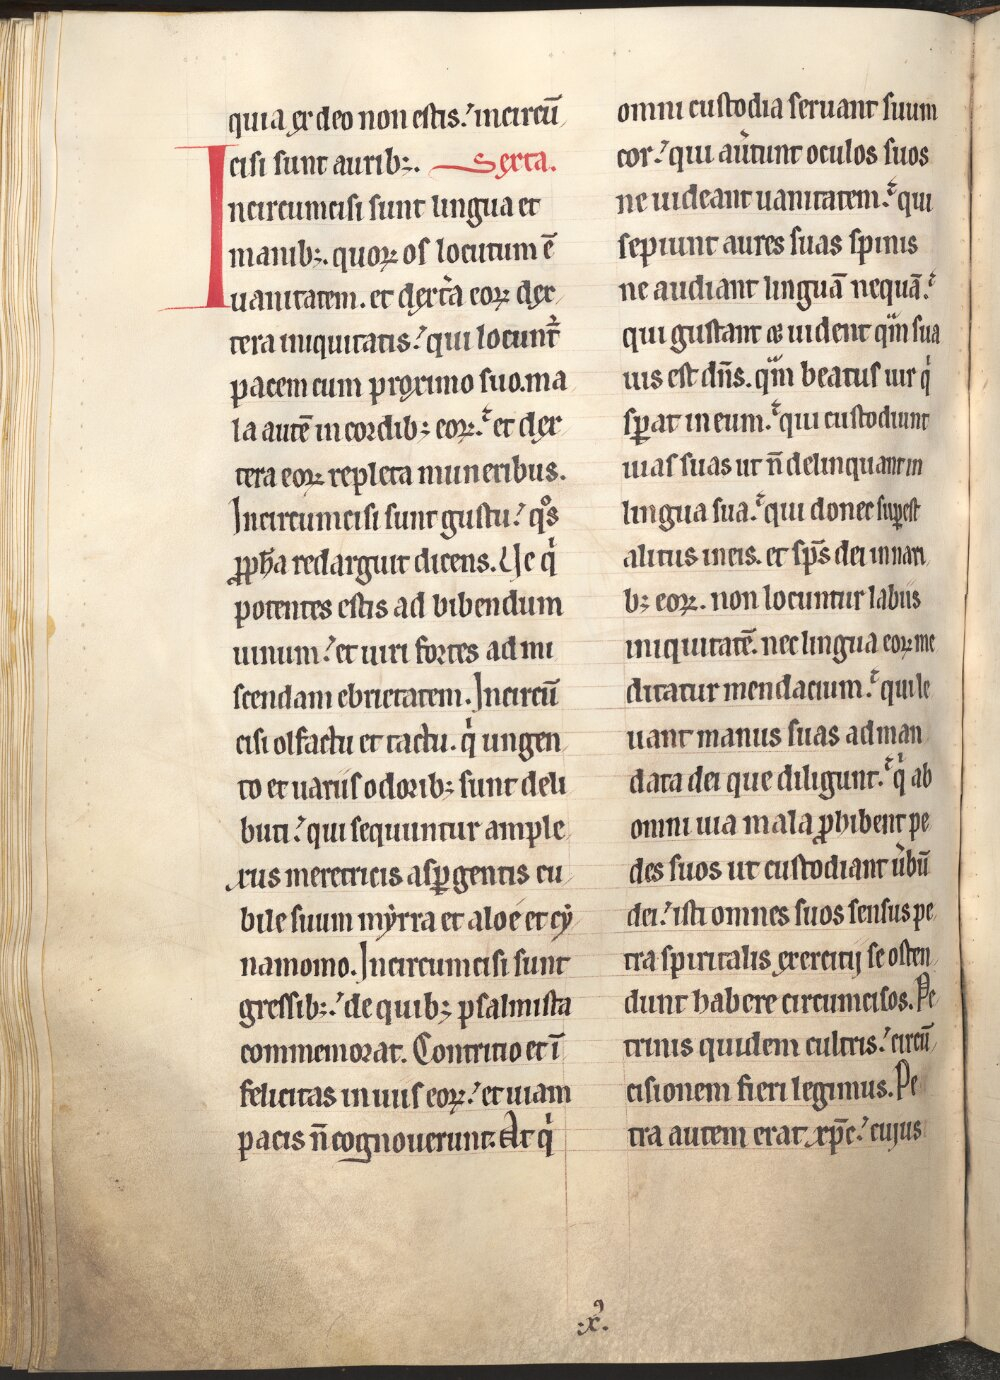 quia ex deo non estis.ʼ incircū
cisi sunt auribꝫ. Sexta.
Incircumcisi sunt lingua et
manibꝫ. quoꝝ os locutum ē
uanitatem. et dext̾a eoꝝ dex
tera iniquitatis.ʼ qui locunt᷑
pacem cum proximo suo. ma
la autē in cordibꝫ eoꝝ.ʼ et dex
tera eoꝝ repleta muneribus.
Incircumcisi sunt gustu.ʼ qͦs
ꝓph̄a redarguit dicens. Ve qͥ
potentes estis ad bibendum
uinum.ʼ et uiri fortes ad mi
scendam ebrietatem. Incircū
cisi olfactu et tactu. qͥ ungen
to et uariis odoribꝫ sunt deli
buti.ʼ qui sequuntur ample
xus meretricis asꝑgentis cu
bile suum myrra et aloe et cy
namomo. Incircumcisi sunt
gressibꝫ.ʼ de quibꝫ psalmista
commemorat. Contritio et ī
felicitas in uiis eoꝝ.ʼ et uiam
pacis n̄ cognouerunt. At qͥ
omni custodia seruant suum
cor.ʼ qui au̾tunt oculos suos
ne uideant uanitatem.ʼ qui
sepiunt aures suas spinis
ne audiant linguā nequā.ʼ
qui gustant & uident qm̄ sua
uis est dn̄s. qm̄ beatus uir qͥ
sꝑat in eum.ʼ qui custodiunt
uias suas ut n̄ delinquant in
lingua sua.ʼ qui donec suꝑest
alitus in eis. et sp̄s dei in nari
bꝫ eoꝝ. non locuntur labiis
iniquitatē. nec lingua eoꝝ me
ditatur mendacium.ʼ qui le
uant manus suas ad man
data dei que diligunt.ʼ qͥ ab
omni uia mala ꝓhibent pe
des suos ut custodiant u̾bū
dei.ʼ isti omnes suos sensus pe
tra spiritalis exercitij se osten
dunt habere circumcisos. Pe
trinis quidem cultris.ʼ circū
cisionem fieri legimus. Pe
tra autem erat xp̄c.ʼ cujus
.x⁹.